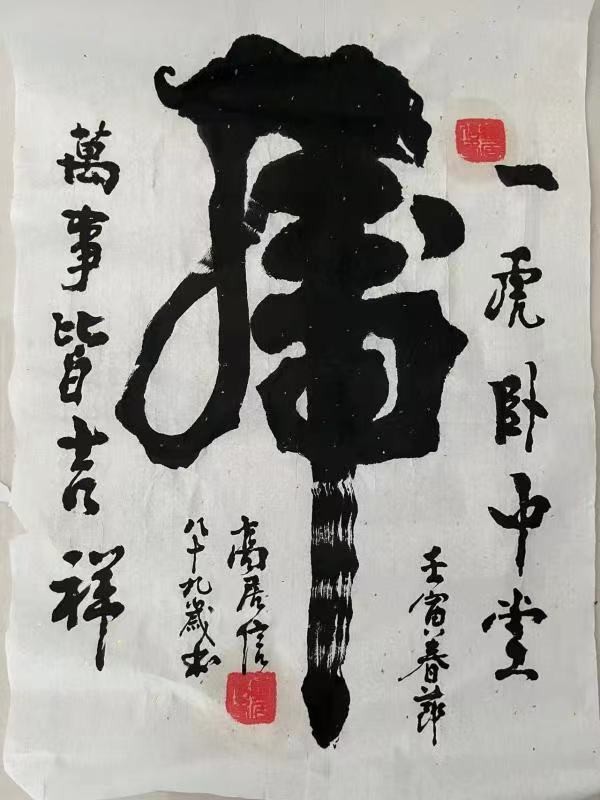 一虎卧中堂
壬寅春节
虎
高居信
八十九岁书
萬事皆吉祥